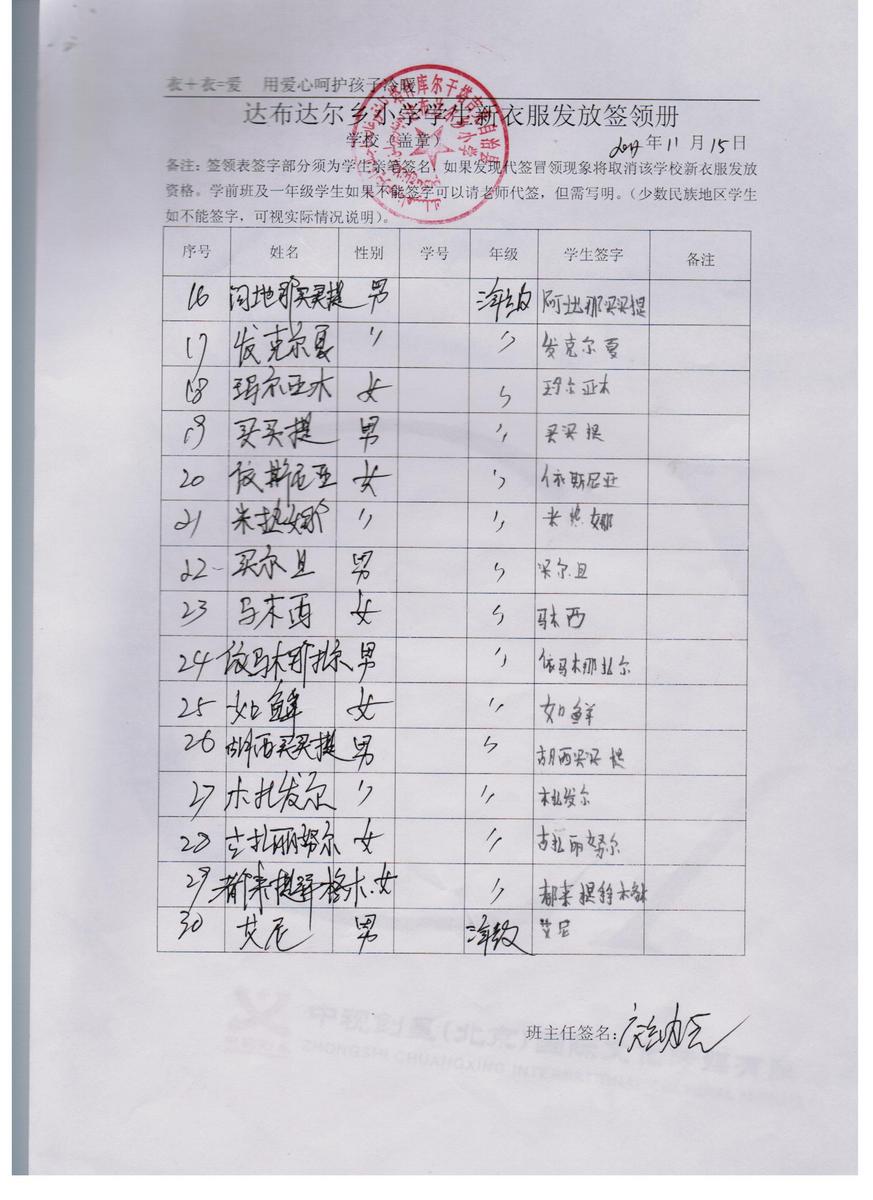 衣+衣=爱 用爱心呵护孩子冷暖
达布达尔乡小学学生新衣服发放签领册
学校（盖章） 年 11 月 15 日
备注：签领表签字部分须为学生亲笔签名，如果发现代签冒领现象将取消该学校新衣服发放
资格。学前班及一年级学生如果不能签字可以请老师代签，但需写明。（少数民族地区学生
如不能签字，可视实际情况说明）。
序号 姓名 性别 学号 年级 学生签字 备注
16 买买提 男 年级 阿地那买买提
17 发克尔夏 〃 〃 发克尔夏
18 玛尔亚木 女 〃 玛尔亚木
19 买买提 男 〃 买买提
20 依斯尼亚 女 〃 依斯尼亚
21 米热娜 〃 〃 米热娜
22 买尔旦 男 〃 买尔旦
23 马木西 女 〃 马木西
24 依马木那扎尔 男 〃 依马木那扎尔
25 如鲜 女 〃 如鲜
26 胡西买买提 男 〃 胡西买买提
27 木扎发尔 〃 〃 木扎发尔
28 古扎丽努尔 女 〃 古扎丽努尔
29 都来提 格木 女 〃 都来提
30 艾尼 男 年级 艾尼
班主任签名：